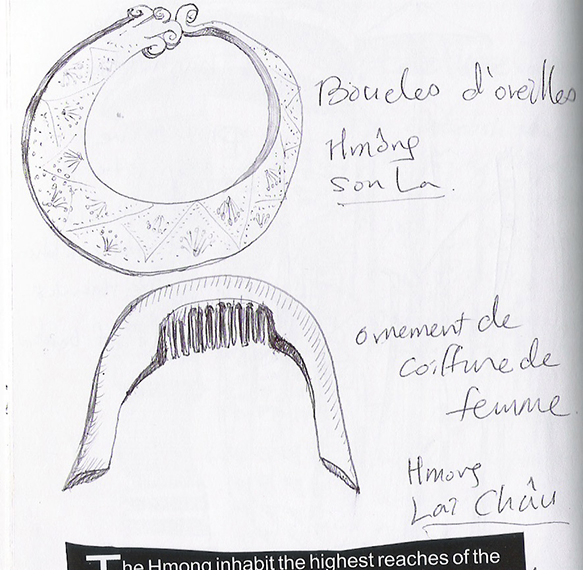 Boucles d'oreilles
Hmông
Son La.
ornement de
coiffure de
femme.
Hmong
Lai Châu
The Hmong inhabit the highest reaches of the